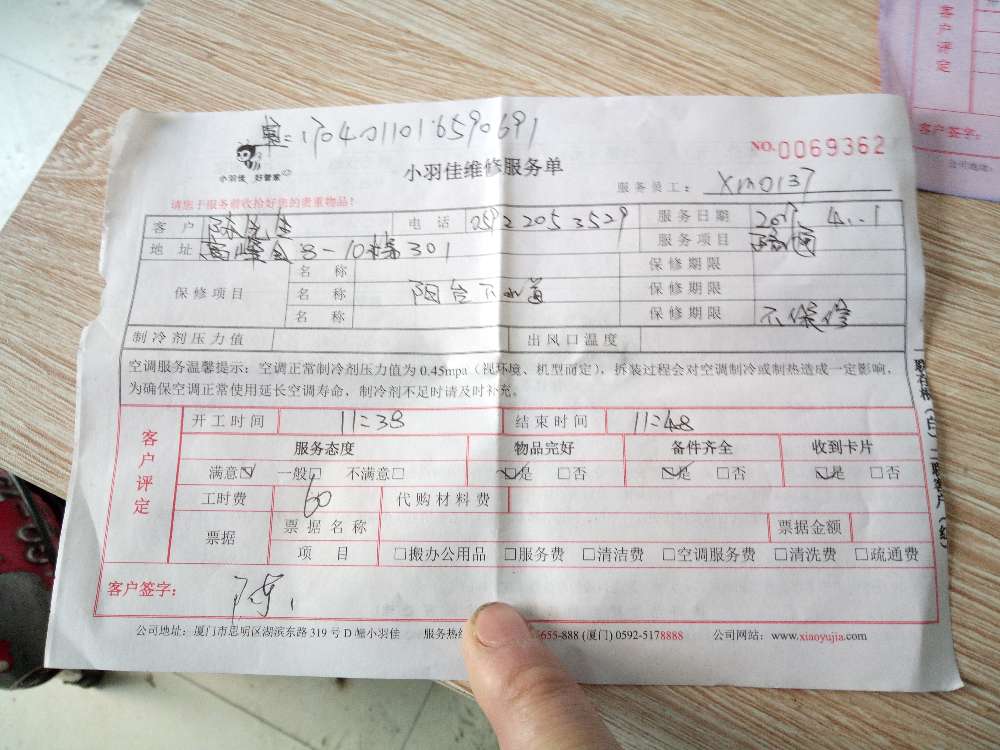 单:1704011016590691
小羽佳 好管家
小羽佳维修服务单
NO.0069362
服务员工: XM0137
请您于服务前收拾好您的贵重物品!
客户 陈先生 电话 0592 2053529 服务日期 2017. 4. 1
地址 8-10栋301 服务项目 疏通
保修项目 名称 保修期限
名称 阳台下水道 保修期限
名称 保修期限 不保修
制冷剂压力值 出风口温度
空调服务温馨提示:空调正常制冷剂压力值为0.45mpa(视环境、机型而定),拆装过程会对空调制冷或制热造成一定影响,
为确保空调正常使用延长空调寿命,制冷剂不足时请及时补充。
客户评定
开工时间 11:38 结束时间 11:48
服务态度 物品完好 备件齐全 收到卡片
满意☑ 一般□ 不满意□ ☑是 □否 ☑是 □否 ☑是 □否
工时费 60 代购材料费
票据 票据名称 票据金额
项目 □搬办公用品 □服务费 □清洁费 □空调服务费 □清洗费 □疏通费
客户签字: 陈
公司地址:厦门市思明区湖滨东路319号D幢小羽佳 服务热 655-888 (厦门) 0592-5178888 公司网站:www.xiaoyujia.com
客户评定
客户签字:
公司地址: